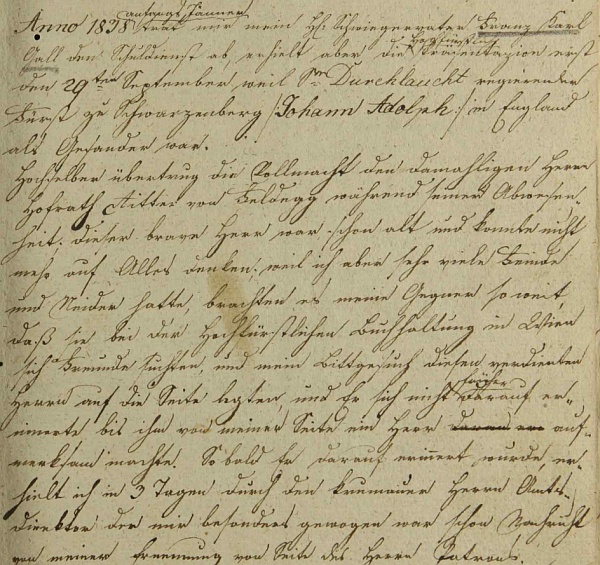 anfangs Jänner
Anno 1838 trat mir mein H. Schwiegervater Franz Karl
hochfürstliche
Gall den Schuldienst ab, erhielt aber die Präsentazion erst
den 29ten September weil Sr Durchlaucht regierender
Fürst zu Schwarzenberg /:Johann Adolph:/ in England
als Gesander war.
Hochselber übertrug die Vollmacht den damahligen Herrn
Hofrath Ritter von Feldegg während seiner Abwesen-
heit. Dieser brave Herr war schon alt und konnte nicht
mehr auf Alles denken: weil ich aber sehr viele Feinde
und Neider hatte, brachten es meine Gegner so weit,
daß sie bei der Hochfürstlichen Buchhaltung in Wien
sich Freunde suchten, und mein Bittgesuch diesen verdienten
Herrn auf die Seite legten, und Er sich nicht darauf er-
früher
innerte bis ihm von meiner Seite ein Herr auf-
merksam machte. Sobald Er darauf erinnert wurde, er-
hielt ich in 3 Tagen durch den krumauer Herrn Amts-
direktor der mir besonders gewogen war schon Nachricht
von meiner Ernennung von Seite des Herrn Patrons.